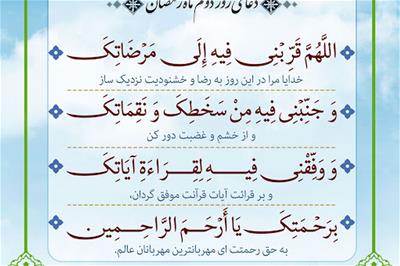 دعای روز دوم ماه رمضان
اللَّهُمَّ قَرِّبْنِی فِیهِ إِلَی مَرْضَاتِکَ
خدایا مرا در این روز به رضا و خشنودیت نزدیک ساز
وَ جَنِّبْنِی فِیهِ مِنْ سَخَطِکَ وَ نَقِمَاتِکَ
و از خشم و غضبت دور کن
وَ وَفِّقْنِی فِیهِ لِقِرَاءَةِ آیَاتِکَ
و بر قرائت آیات قرآنت موفق گردان،
بِرَحْمَتِکَ یَا أَرْحَمَ الرَّاحِمِینَ
به حق رحمتت ای مهربانترین مهربانان عالم.